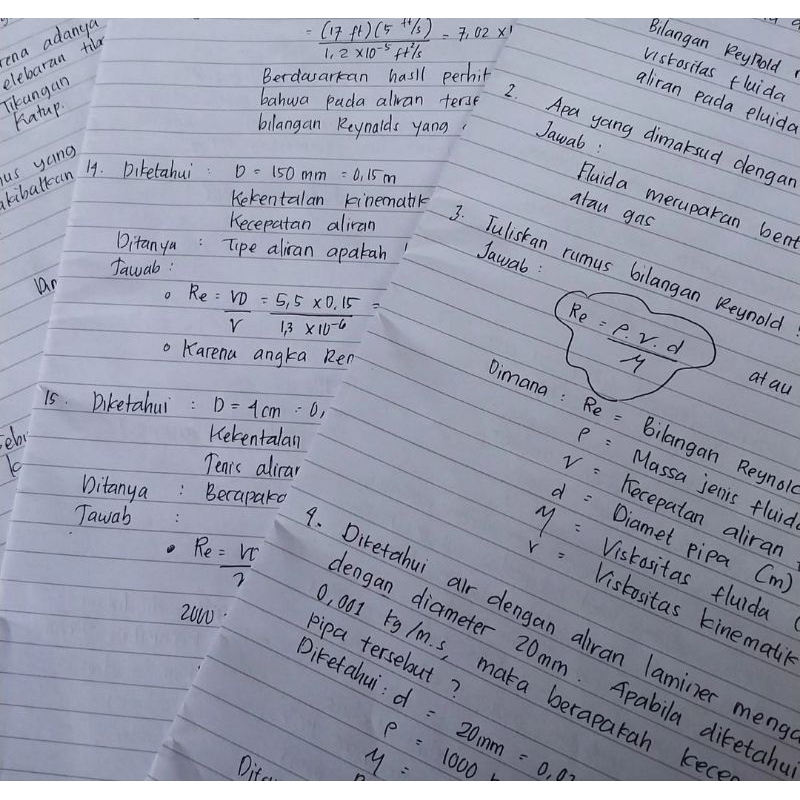 adanya
elebaran
Tikungan
Katup.
yang
= (17 ft)(5 ft/s) = 7,02 x
1,2 x10⁻⁵ ft²/s
Berdasarkan hasil perhit
bahwa pada aliran terse
bilangan Reynolds yang
14. Diketahui : D = 150 mm = 0,15 m
Kekentalan kinematik
Kecepatan aliran
Ditanya : Tipe aliran apakah
Jawab :
Re = VD = 5,5 x 0,15 =
V 1,3 x10⁻⁶
Karena angka Ren
15. Diketahui : D = 4 cm = 0,
Kekentalan
Jenis aliran
Ditanya : Berapaka
Jawab :
Re = VD
2000
Bilangan Reynold
viskositas fluida
aliran pada fluida
2. Apa yang dimaksud dengan
Jawab :
Fluida merupakan bent
atau gas
3. Tuliskan rumus bilangan Reynold
Jawab :
Re = ρ . v . d atau
μ
Dimana : Re = Bilangan Reynold
ρ = Massa jenis fluida
v = Kecepatan aliran
d = Diamet pipa (m)
μ = Viskositas fluida (
v = Viskositas kinematik
4. Diketahui air dengan aliran laminer menga
dengan diameter 20mm. Apabila diketahui
0,001 kg/m.s, maka berapakah kecep
pipa tersebut ?
Diketahui : d = 20mm = 0,02
ρ = 1000
μ =